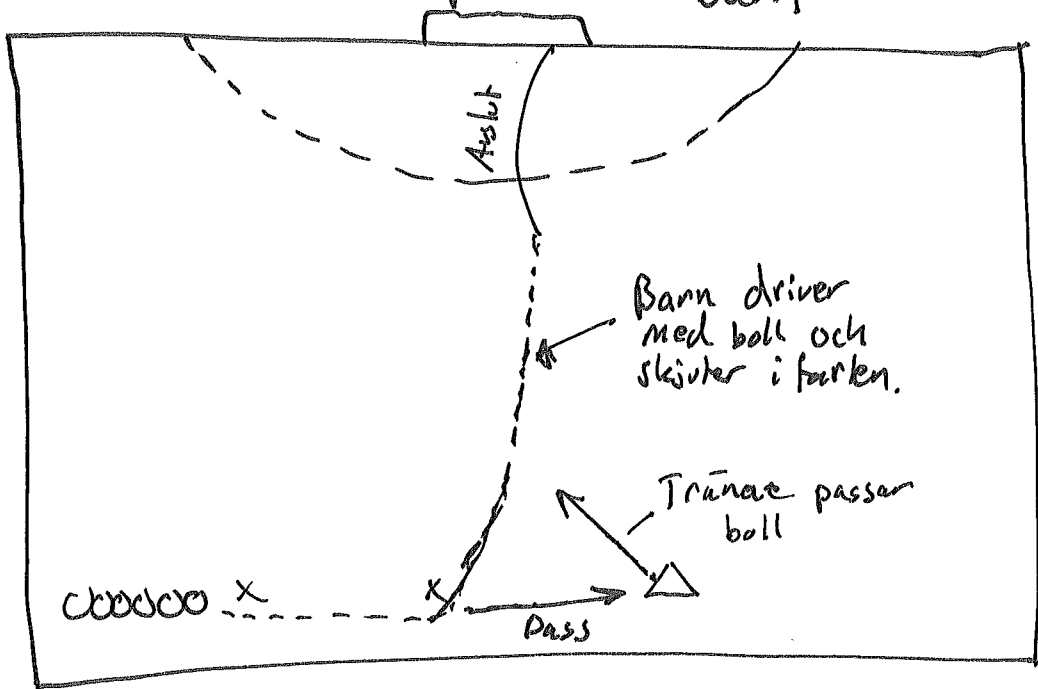 Avslut
Barn driver
med boll och
skjuter i farten.
Tränare passar
boll
OOOOOO X X
Pass